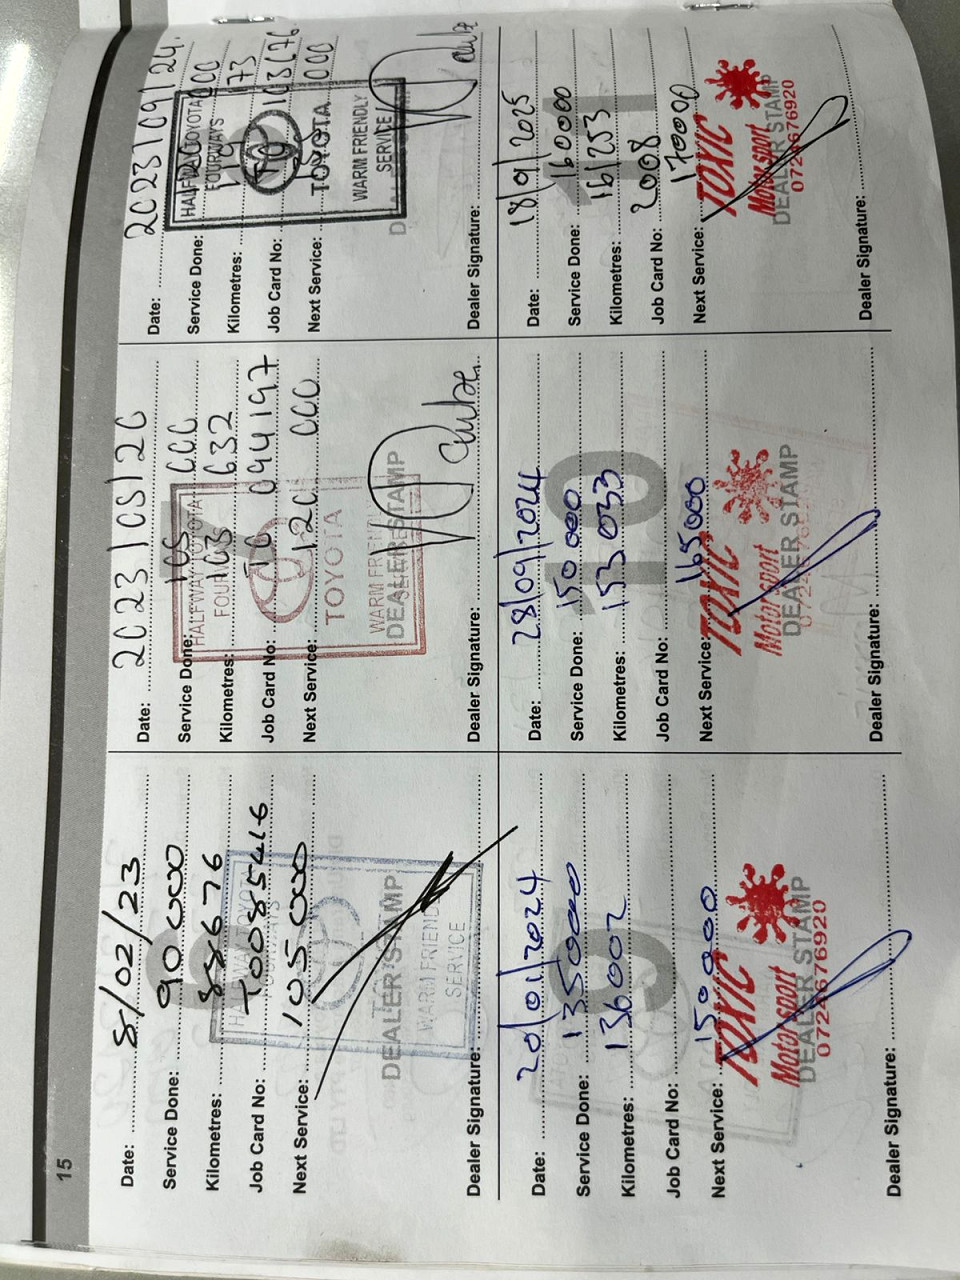 15
Date: 8/02/23
Service Done: 90 000
Kilometres: 88676
Job Card No: T0085416
Next Service: 105 000
HALFWAY TOYOTA
FOURWAYS
DEALER STAMP
WARM FRIENDLY
SERVICE
Dealer Signature:
Date: 2023/05/26
Service Done: 105 000
Kilometres: 103 632
Job Card No: T0 094197
Next Service: 120 000
HALFWAY TOYOTA
FOURWAYS
TOYOTA
WARM FRIENDLY
SERVICE
DEALER STAMP
Dealer Signature:
Date: 2023/09/24
Service Done: 120 000
Kilometres: 173
Job Card No: T0 103176
Next Service: 000
HALFWAY TOYOTA
FOURWAYS
TOYOTA
WARM FRIENDLY
SERVICE
Dealer Signature:
9
Date: 20/01/2024
Service Done: 135000
Kilometres: 136002
Job Card No:
Next Service: 150000
TOXIC
Motorsport
DEALER STAMP
0724676920
Dealer Signature:
10
Date: 28/09/2024
Service Done: 150 000
Kilometres: 153 033
Job Card No:
Next Service: 165000
TOXIC
Motorsport
DEALER STAMP
Dealer Signature:
11
Date: 18/9/2025
Service Done: 160000
Kilometres: 161253
Job Card No: 2008
Next Service: 170000
TOXIC
Motorsport
DEALER STAMP
0724676920
Dealer Signature: